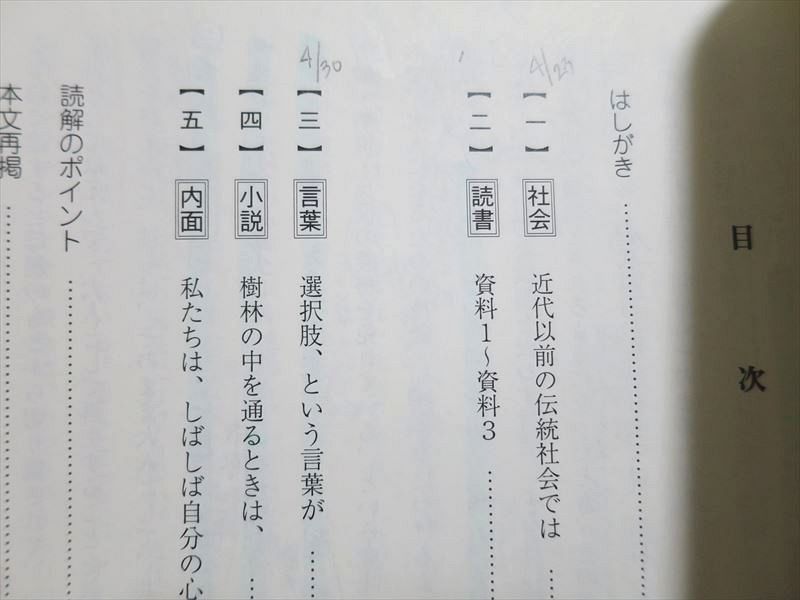 目次
はしがき
4/27
【一】 社会 近代以前の伝統社会では
【二】 読書 資料1~資料3
4/30
【三】 言葉 選択肢、という言葉が
【四】 小説 樹林の中を通るときは、
【五】 内面 私たちは、しばしば自分の心
読解のポイント
本文再掲